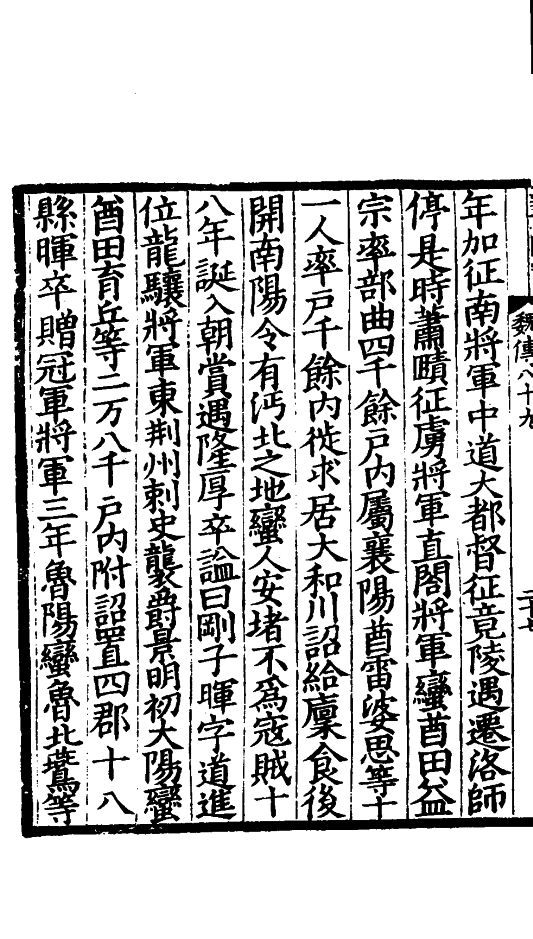 魏傳八十九
二十七
年加征南將軍中道大都督征竟陵遇遷洛師
停是時蕭賾征虜將軍直閤將軍蠻酋田益
宗率部曲四千餘戶內屬襄陽酋雷婆思等十
一人率戶千餘內徙求居大和川詔給廩食後
開南陽令有沔北之地蠻人安堵不爲寇賊十
八年誕入朝賞遇隆厚卒謚曰剛子暉字道進
位龍驤將軍東荆州刺史襲爵景明初大陽蠻
酋田育丘等二万八千戶內附詔置四郡十八
縣暉卒贈冠軍將軍三年魯陽蠻魯北鷰等